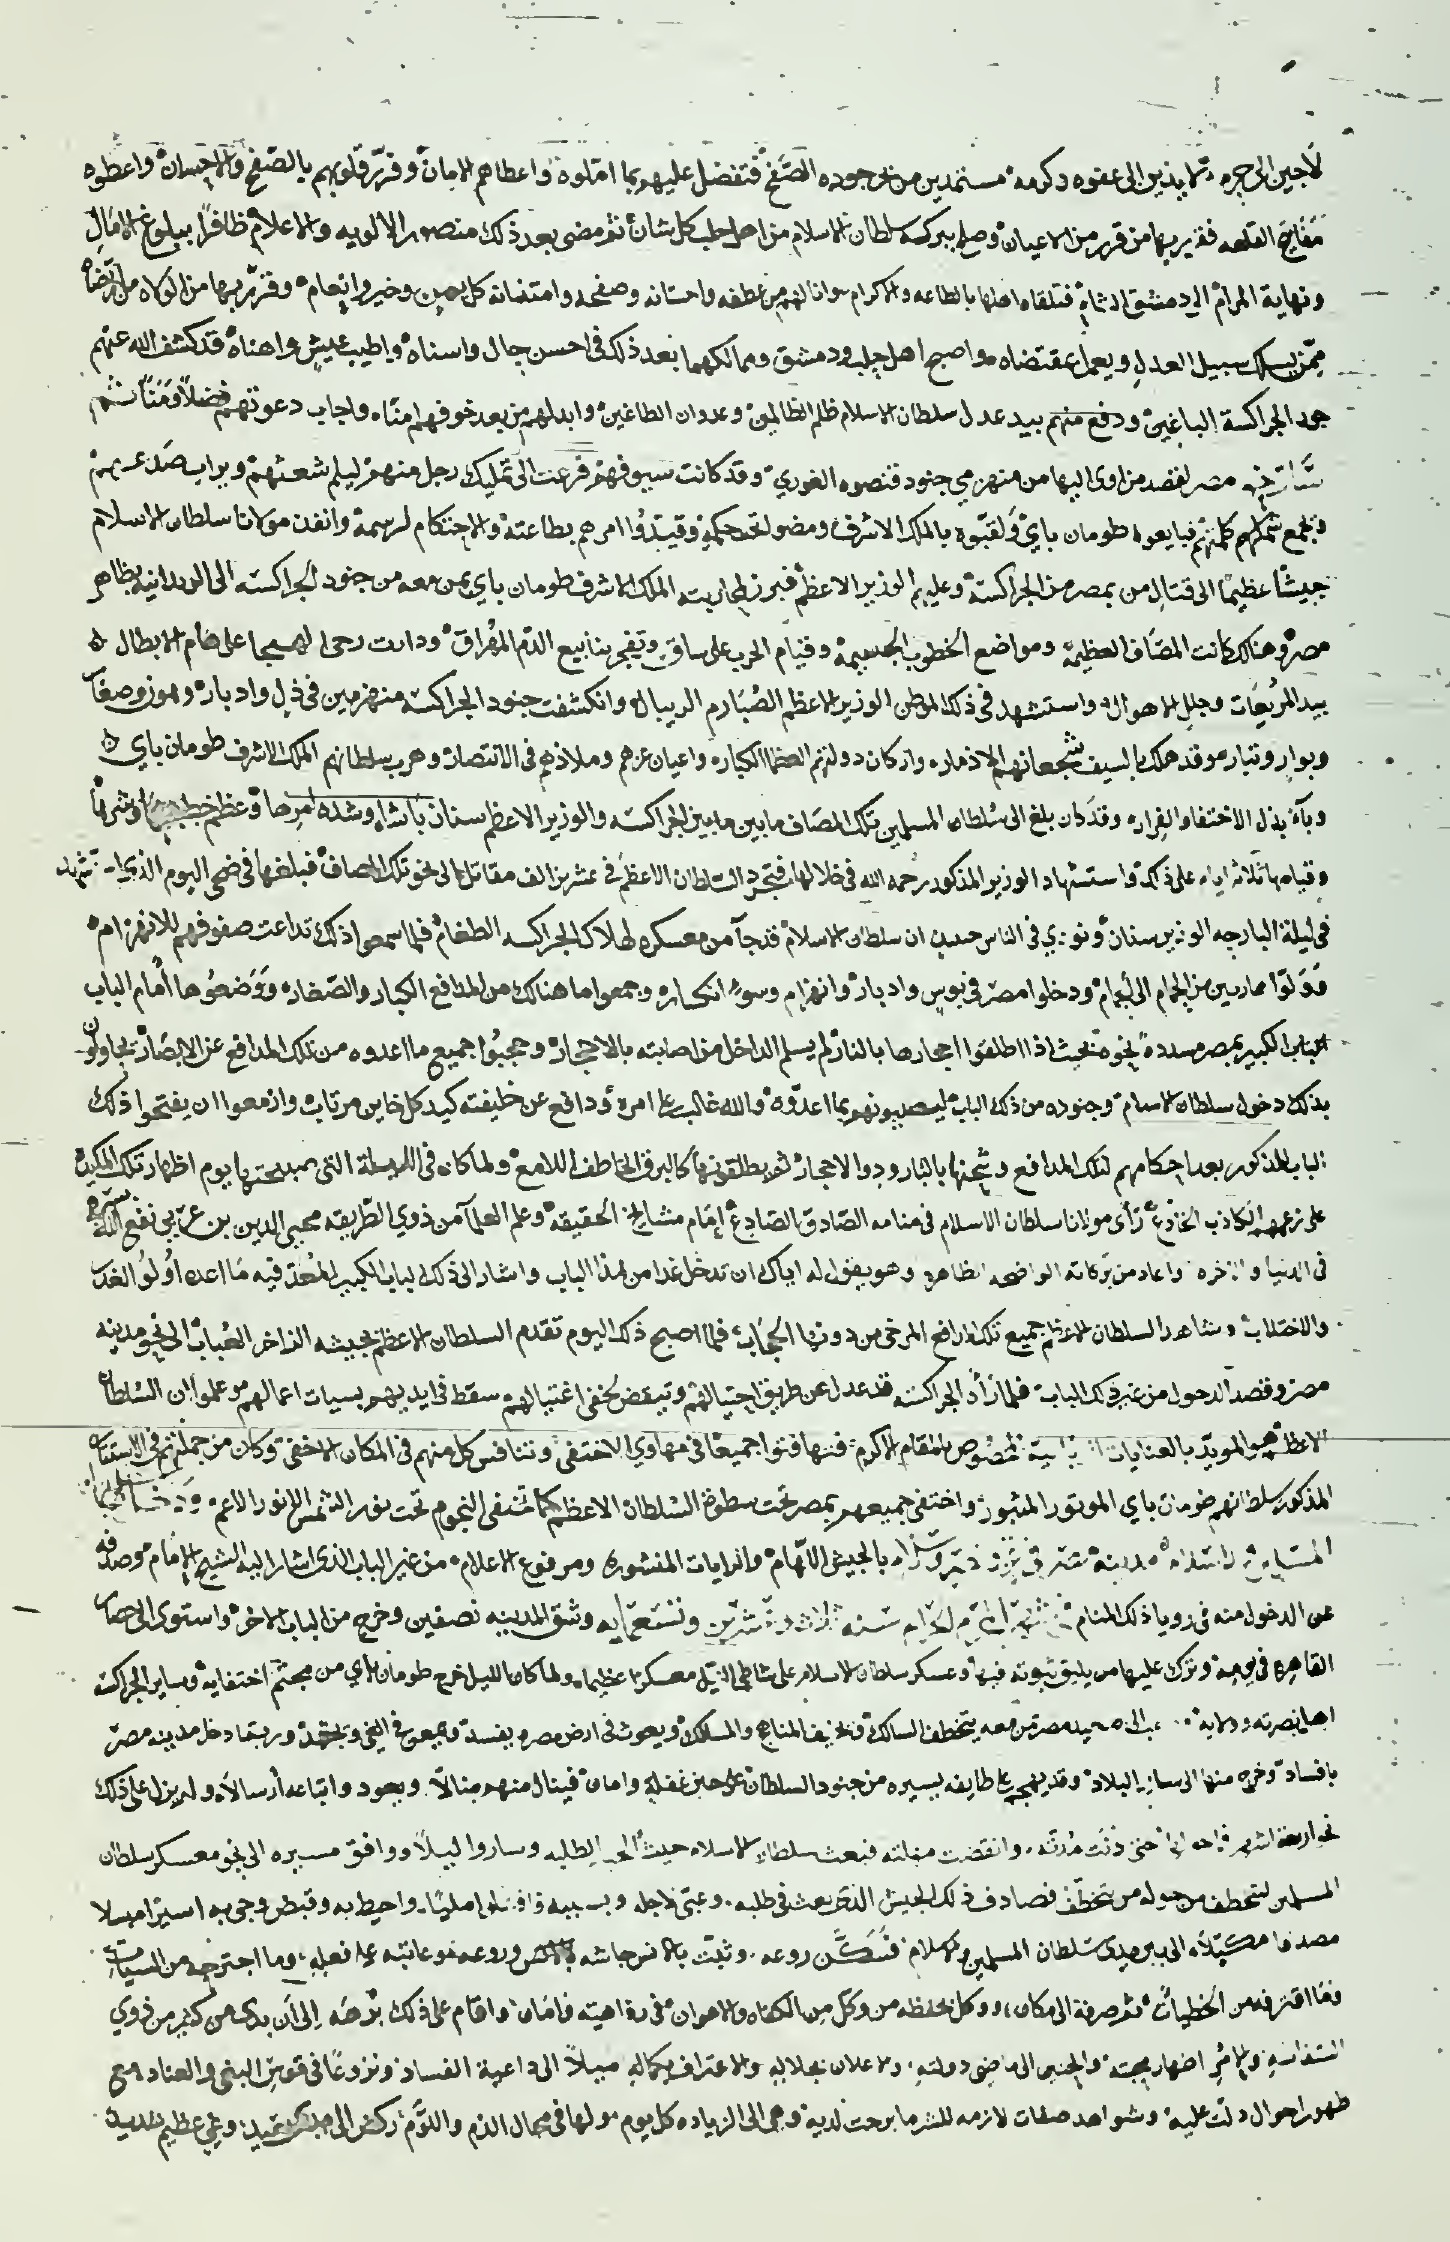 لاجين الى حرمه لايذين الى عفوه وكرمه مستمدين من بحر جوده الصفح فتفضل عليهم بما املوه واعطاهم الامان وقرر قلوبهم بالصفح والاحسان واعطوه
مفاتيح القلعه فقرر بها من قرر من الاعيان وصلح ببركة سلطان الاسلام من اهل حلب كل شان ثم مضى بعد ذلك منصور الالويه والاعلام ظافرا ببلوغ الامال
ونهاية المرام الى دمشق الشام فتلقاه اهلها بالطاعه والاكرام وانالهم من عطفه واحسانه وصفحه وامتنانه كل وخير وانعام وقرر بها من الولاه من ارتضاه
ممن يسلك سبيل العدل ويعمل بمقتضاه واصبح اهل حلب ودمشق وممالكهما بعد ذلك في احسن حال واسناه واطيب عيش واهناه قد كشف الله عنهم
جور الجراكسة الباغين ودفع منهم بيد عدل سلطان الاسلام ظلم الظالمين وعدوان الطاغين وابدلهم من بعد خوفهم امنا واجاب دعوتهم فضلا ومنا ثم
مصر لقصد من اوى اليها من منهزمي جنود قنصوه الغوري وقد كانت سيوفهم فزعت الى تمليك رجل منهم ليلم شعثهم ويراب صدعهم
ويجمع شملهم كلمتهم فبايعوا طومان باي ولقبوه بالملك الاشرف ومضوا تحت حكمه وقيدوا امرهم بطاعته والاحتكام لرسمه وانفذ مولانا سلطان الاسلام
جيشا عظيما الى قتال من بمصر من الجراكسة وعليهم الوزير الاعظم فبرز لمحاربته الملك الاشرف طومان باي بمن معه من جنود الجراكسه الى الريدانيه بظاهر
مصر وهنالك كانت المصاف العظيمة ومواضع الخطوب الجسيمة وقيام الحرب على ساق وتفجر ينابيع الدم المهراق ودارت رحى الهيجا على هام الابطال
بيد المريعات وجلل الاهوال واستشهد في ذلك الموطن الوزير الاعظم الصارم الريبال وانكشفت جنود الجراكسه منهزمين في ذل وادبار وهوان وصغار
وبوار وتبار وقد هلك بالسيف شجعانهم الاذمار وازكان دولتهم العظما الكبار واعيان عزهم وملاذهم في الانتصار وهرب سلطانهم الملك الاشرف طومان باي
وبآء بذل الاختفا والفرار وقد كان بلغ الى سلطان المسلمين تلك المصاف ما بين الجراكسه والوزير الاعظم سنان باشا وشدة امرها وعظم خطبها وشرها
وقيامها ثلاثة ايام على ذلك واستشهاد الوزير المذكور رحمه الله في خلالها فتجرد السلطان الاعظم في عشرين الف مقاتل الى نحو تلك المصاف فبلغها في ضحى اليوم الذي استشهد
في ليلة البارحه الوزير سنان ونودي في الناس ان سلطان الاسلام قد جآ من معسكره لهلاك الجراكسه الطغام فلما سمعوا ذلك تداعت صفوفهم للانهزام
وولوا هاربين من الحمام الى الحمام ودخلوا مصر في بوس وادبار وانهزام وسوء انكسار وجمعوا ما هنالك من المدافع الكبار والصغار ووضعوها امام الباب
الباب الكبير بمصر مسددة نحوه بحيث اذا اطلقوا احجارها بالنار لم يسلم الداخل من اصابته بالاحجار وحجبوا جميع ما اعدوه من تلك المدافع عن الابصار يحاولون
بذلك دخول سلطان الاسلام وجنوده من ذلك الباب ليصيبونهم بما اعدوه والله غالب على امره ودافع عن خليفته كيد كل خاين مرتاب وازمعوا ان يفتحوا ذلك
الباب المذكور بعد احكامهم لتلك المدافع وشحنها بالبارود والاحجار ثم يطلقونها كالبرق الخاطف اللامع ولما كان في الليلة التي صبيحتها يوم اظهار تلك المكيدة
على زعمهم الكاذب الخادع رأى مولانا سلطان الاسلام في منامه الصادق الصادع إمام مشايخ الحقيقة وعلم العلمآ من ذوي الطريقه محيي الدين بن عربي نفع الله بسره
في الدنيا والاخره واعاد من بركاته الواضحه الظاهره وهو يقول له اياك ان تدخل غدا من هذا الباب واشار الى ذلك الباب الكبير المعد فيه ما اعده اولو الغدر
والاختلاب وشاهد السلطان الاعظم جميع تلك المدافع المرخى من دونها الحجاب فلما اصبح ذلك اليوم تقدم السلطان الاعظم بجيشه الزاخر العباب الى نحو مدينه
مصر وقصد الدخول من غير ذلك الباب فلما رأى الجراكسه قد عدل عن طريق احتيالهم وتيقض لخفى اغتيالهم سقط في ايديهم بسيات اعمالهم وعلموا ان السلطان
الاعظم هو المويد بالعنايات المخصوص بالمقام الاكرم فتهافتوا جميعا في مهاوي الاختفى وتنافس كل منهم في المكان الاخفى وكان من جملتهم في الاستتار
المذكور سلطانهم طومان باي الموتور المثبور واختفى جميعهم بمصر تحت سطوة السلطان الاعظم كما تختفى النجوم تحت نور الشمس الانور الاعم ودخل
مدينة بالجيش اللهام والرايات المنشورة ومرفوع الاعلام من غير الباب الذي اشار اليه الشيخ الامام وصدفه
عن الدخول منه في رويا ذلك المنام الحرام سنه ثلاث وعشرين وتسعمايه وشق المدينه نصفين وخرج من الباب الاخر واستوى الى حصار
القاهره في يومه وترك عليها من يليق ثبوته فيها وعسكر سلطان الاسلام على شاطي النيل معسكرا عظيما ولما كان الليل خرج طومان باي من مجثم اختفايه وساير الجراكسه
اهل نصرته وولايه الى صعيد مصر بمن معه يتخطف السالك ويخيف المناهج والمسالك ويعوث في ارض مصر ويفسد ويمعن في الغي ويجتهد وربما دخل مدينه مصر
بافساد وخرج منها الى ساير البلاد وقد يهجم على طايفه يسيره من جنود السلطان على حين غفلة وامان فينال منهم منالا ويعود واتباعه أرسالا ولم يزل على ذلك
نحو اربعة اشهر حتى دنت مدته وانقضت مهلته فبعث سلطان الاسلام لطلبه وساروا ليلا ووافق مسيره الى نحو معسكر سلطان
المسلمين لتخطف من حوله من يتخطف فصادف ذلك الجيش الذي بعث في طلبه وعبى لاجله وبسببه واحيط به وقبض وجي به اسيرا
مصفدا مكبلا الى بين يدي سلطان المسلمين والاسلام فسكن روعه وثبت بالانس جاشه وروعه ثم عاتبه على فعله وما اجترحه من السيات
وما اقترفه من الخطيات ثم صرفه الى مكان ووكل بحفظه من وكل من الكفاه والاعوان في رفاهيته وامان واقام على ذلك برهه إلى أن بدى من كثير من ذوي
اظهار محبته والحنين الى ماضي دولته والاعلان بجلاله والاعتراف بكماله ميلا الى داعية الفساد ونزوعا في قوس البغي والعناد مع
ظهور احوال دلت عليه وشواهد صفات لازمه للشر ما برحت لديه وهي الى الزياده كل يوم مولها في مجال الذم واللوم ركض الى وغي عظيم